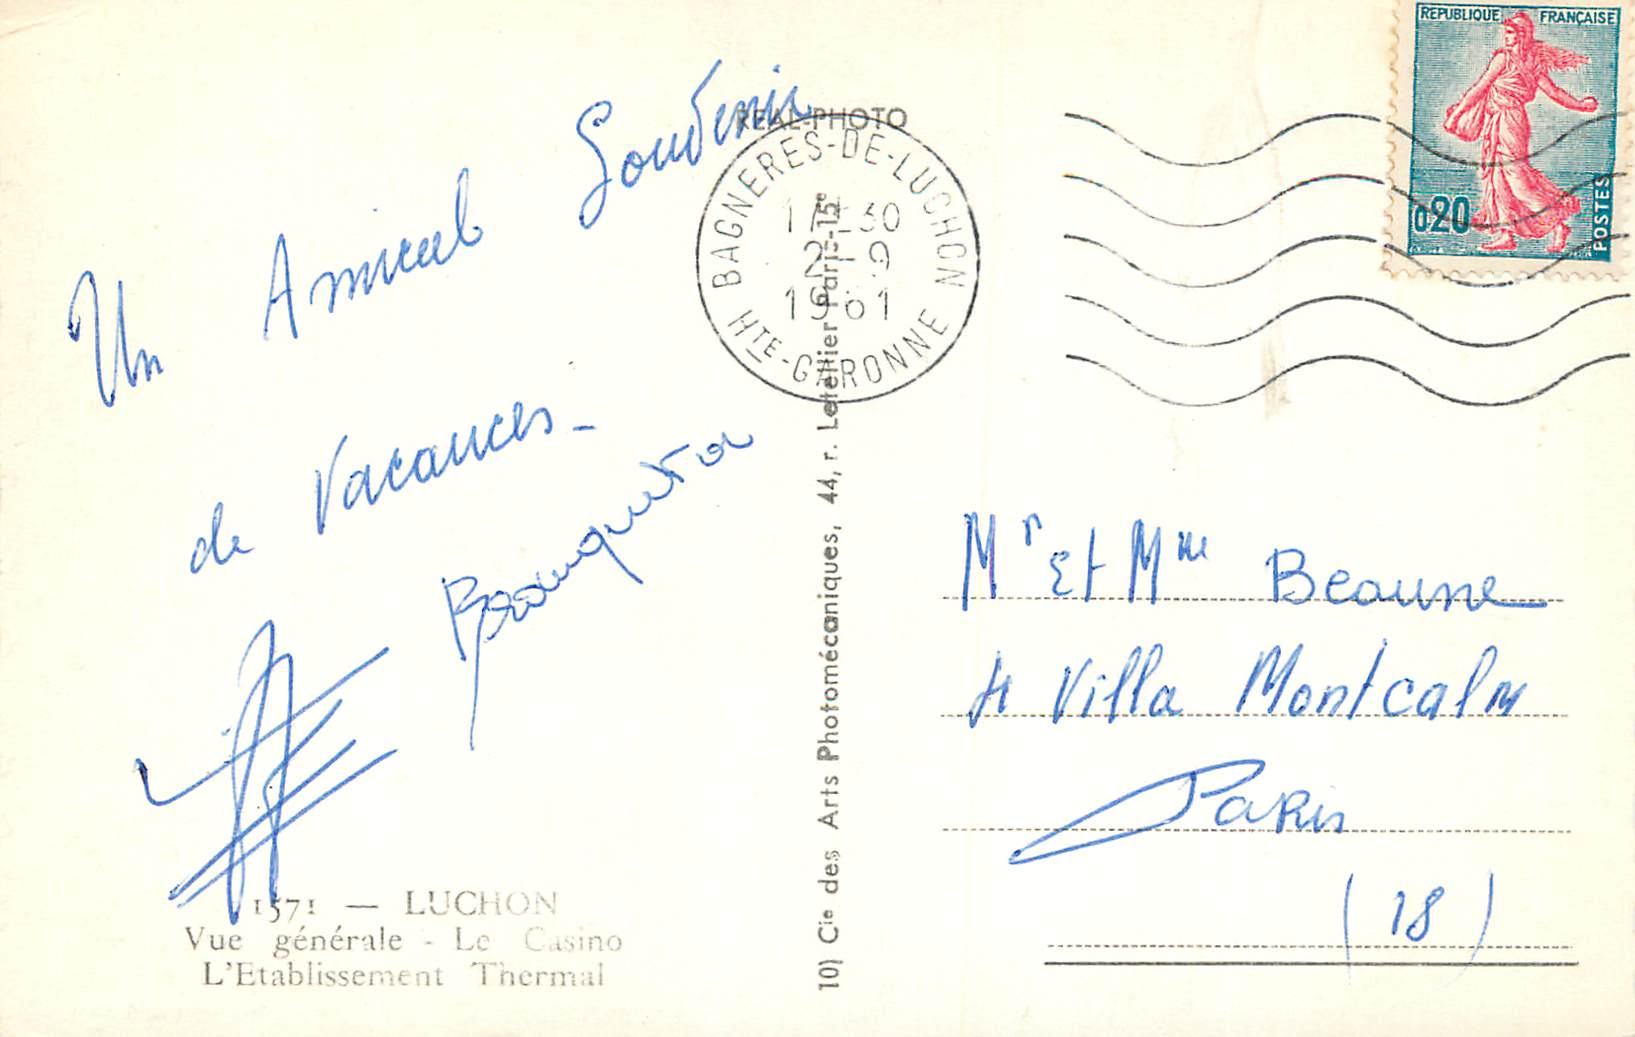 Un Amical Souvenir
de Vacances -
1571 — LUCHON
Vue générale - Le Casino
L'Etablissement Thermal
REAL-PHOTO
10) Cie des Arts Photomécaniques, 44, r. Letellier Paris-15e
BAGNERES-DE-LUCHON
17 30
2 - 9
1961
HTE-GARONNE
REPUBLIQUE FRANÇAISE
0,20
POSTES
Mr Et Mme Beaune
4 Villa Montcalm
Paris
(18)